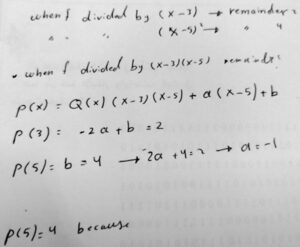 when f divided by (x-3) → remainder =
" " (x-5) → " 4
• when f divided by (x-3)(x-5) remainder?
P(x) = Q(x) (x-3)(x-5) + a(x-5)+b
P(3) = -2a + b = 2
P(5) = b = 4 → -2a + 4 = 2 → a = -1
P(5) = 4 because